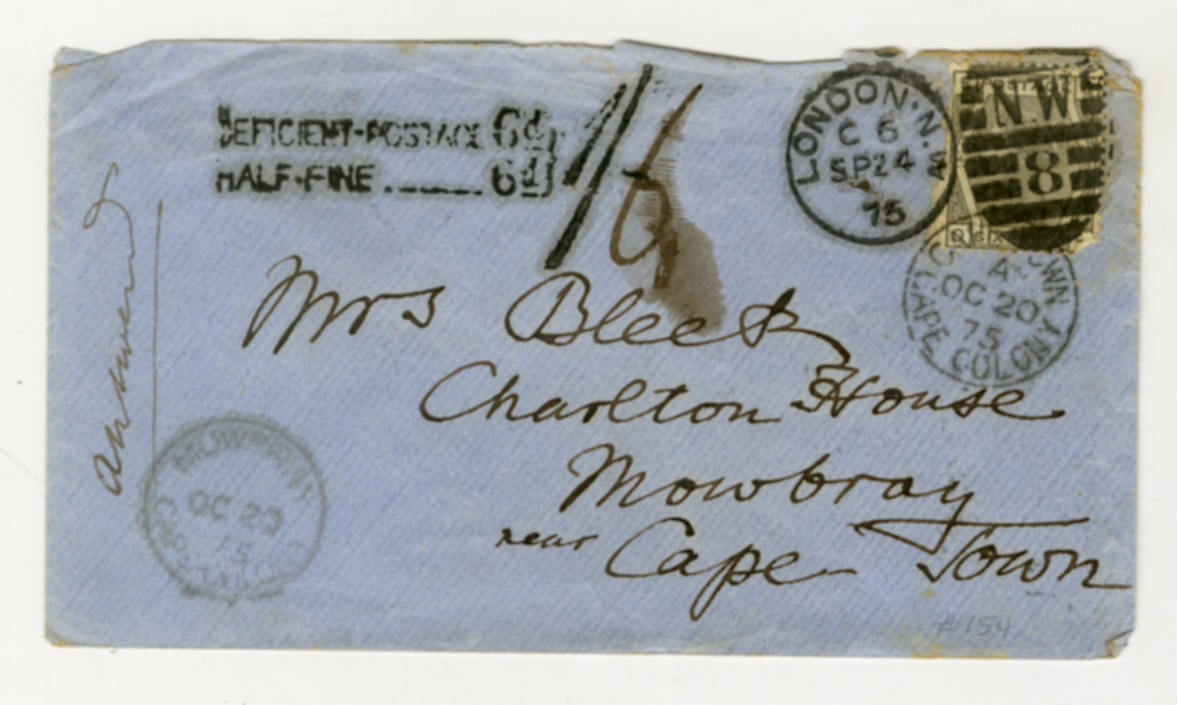 DEFICIENT-POSTAGE 6d
HALF-FINE 6d
1/6
LONDON·N.W
C 6
SP24
75
N.W
8
CAPE TOWN
A
OC 20
75
CAPE COLONY
Mrs Bleek
Charlton House
Mowbray
near Cape Town
answered
MOWBRAY
OC 20
75
CAPE COLONY
#154